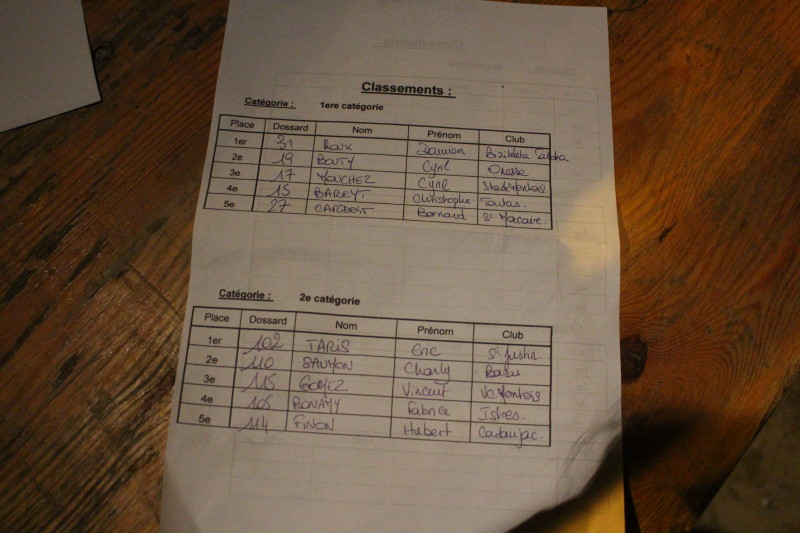 Classements :
Catégorie : 1ere catégorie
Place Dossard Nom Prénom Club
1er 31 Roux Damien
2e 19 BOUTY Cyril
3e 17 MOUCHEZ Cyril
4e 15 BAREYT Christophe
5e 27 Bernard St Macaire.
Catégorie : 2e catégorie
Place Dossard Nom Prénom Club
1er 102 TARIS Eric St Justin
2e 110 Charly Bazas
3e 115 GOMEZ Vincent
4e 105 BONAMY Fabrice Istres.
5e 114 FINON Hubert